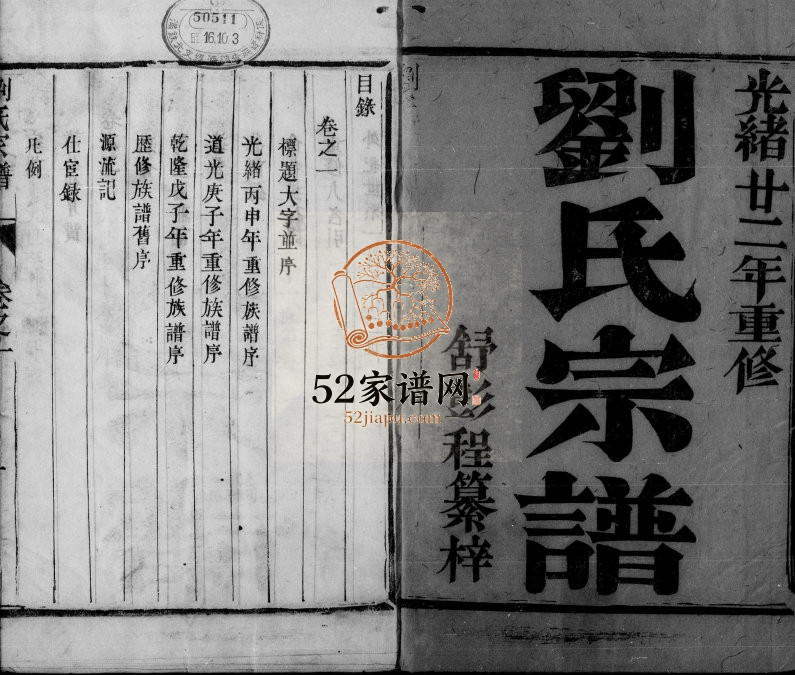 光緒廿二年重修
劉氏宗譜
舒彭程纂梓
目錄
卷之一
標題大字並序
光緒丙申年重修族譜序
道光庚子年重修族譜序
乾隆戊子年重修族譜序
歷修族譜舊序
源流記
仕宦錄
凡例
劉氏宗譜
卷之一
50511
16.10.3
52家谱网
52jiapu.com